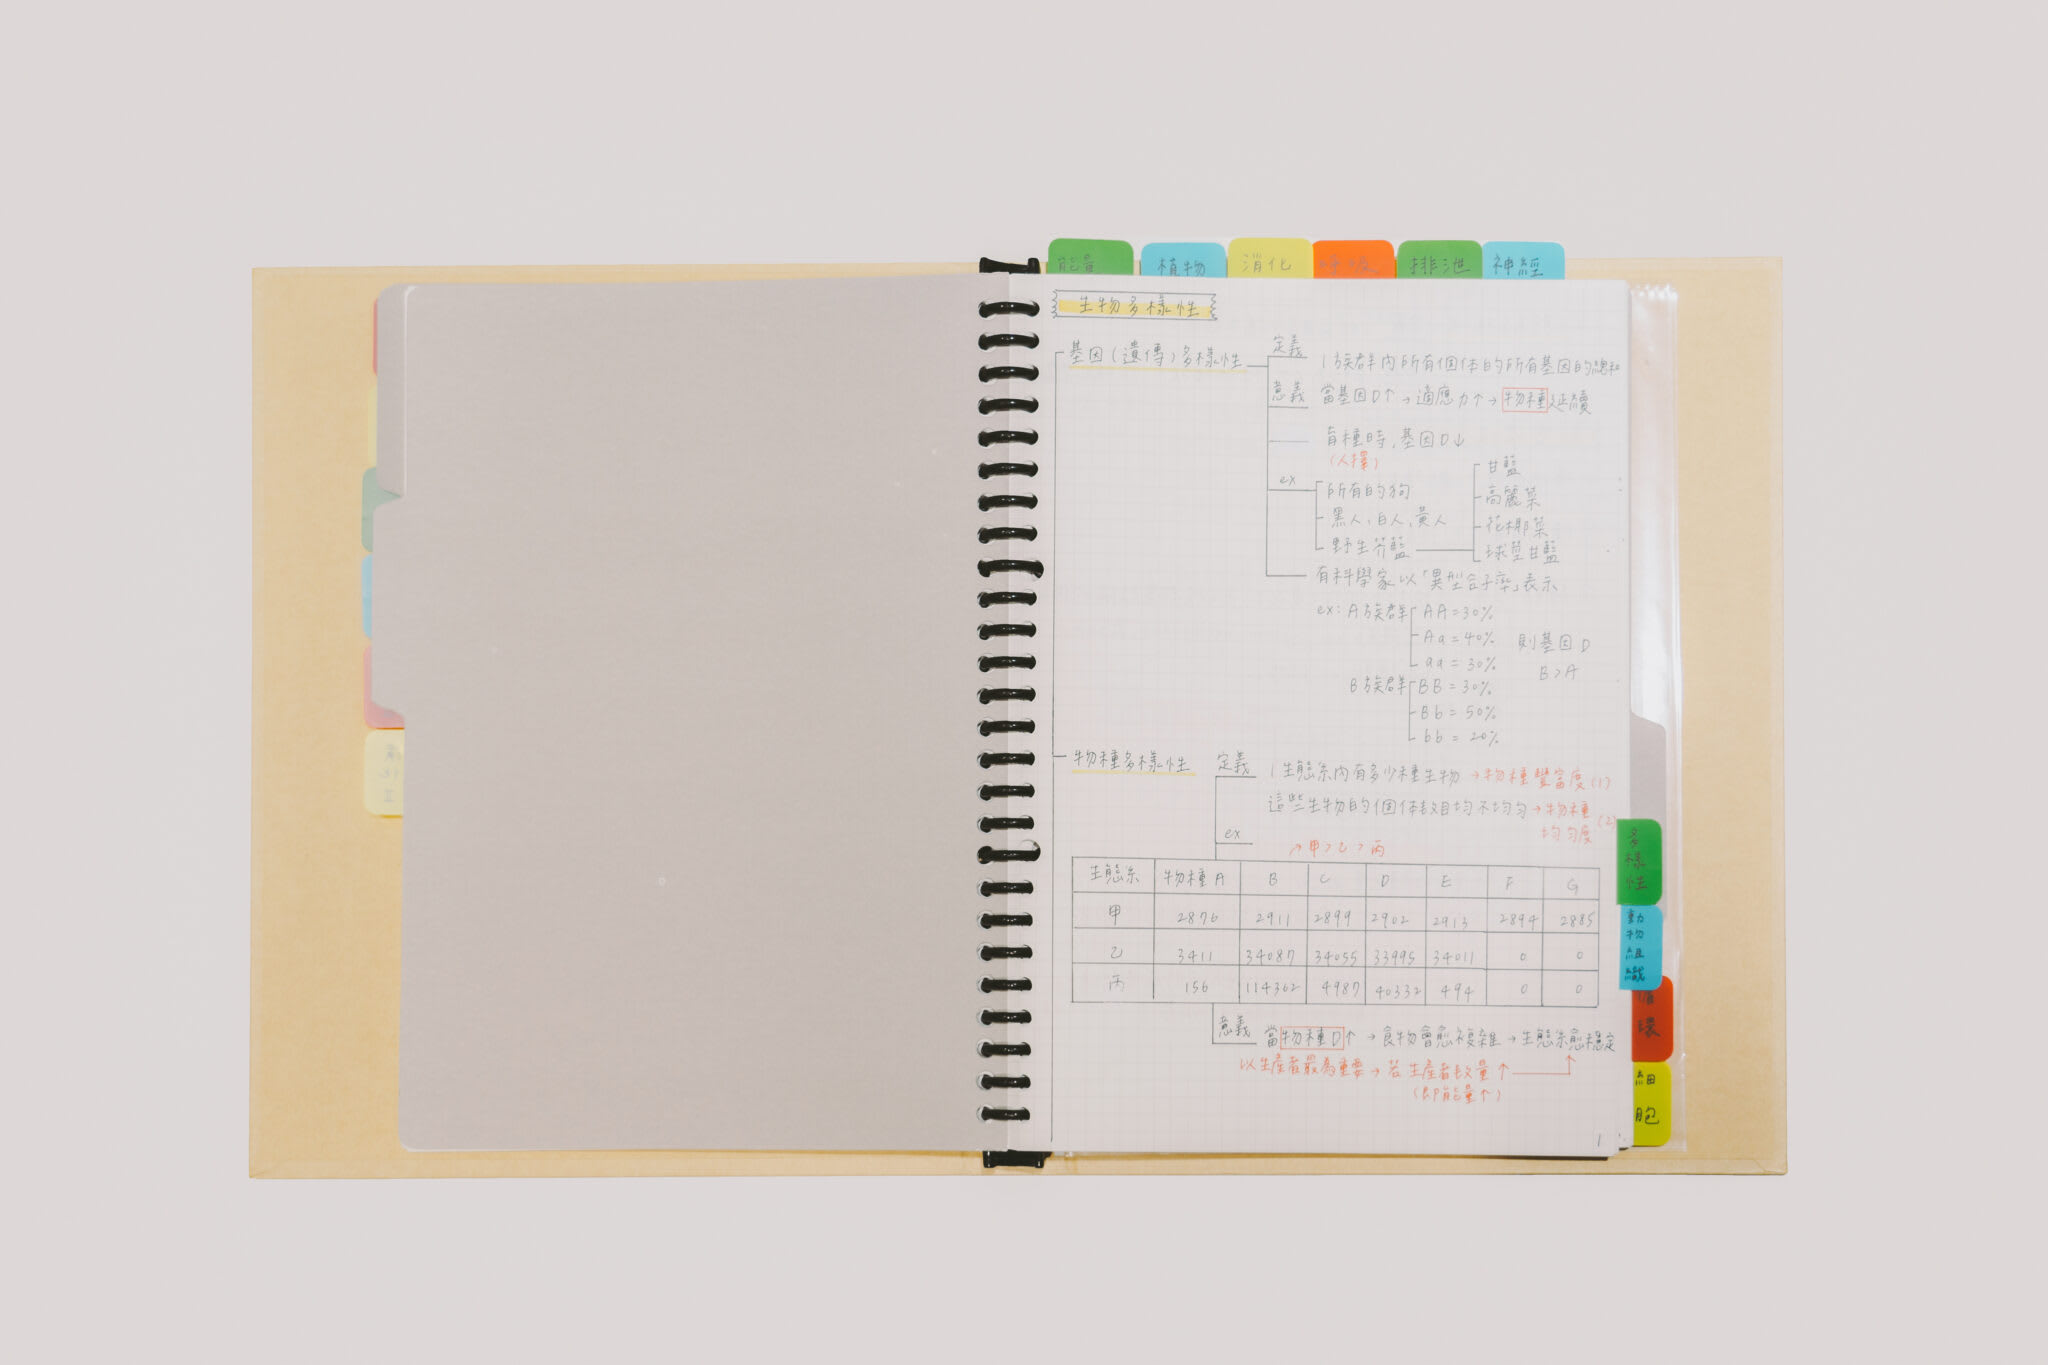 能量
植物
消化
呼吸
排泄
神經
生物多樣性
基因(遺傳)多樣性
定義
1族群內所有個体的所有基因的總和
意義 當基因D↑→適應力↑→物種延續
育種時,基因D↓
(人擇)
ex
所有的狗
黑人,白人,黃人
野生芥藍
甘藍
高麗菜
花椰菜
球莖甘藍
有科學家以「異型合子率」表示
ex: A族群 AA=30%
Aa=40%
aa=30%
B族群 BB=30%
Bb=50%
bb=20%
則基因D
B>A
物種多樣性 定義
1生態系內有多少種生物→物種豐富度(1)
這些生物的個体數目均不均勻→物種均勻度(2)
ex
→甲>乙>丙
生態系 物種A B C D E F G
甲 2876 2911 2899 2902 2913 2894 2885
乙 3411 34087 34055 33995 34011 0 0
丙 156 114362 4987 40332 494 0 0
意義 當物種D↑→食物會愈複雜→生態系愈穩定
以生產者最為重要→若生產者數量↑
(即能量↑)
1
多樣性
動物組織
循環
細胞